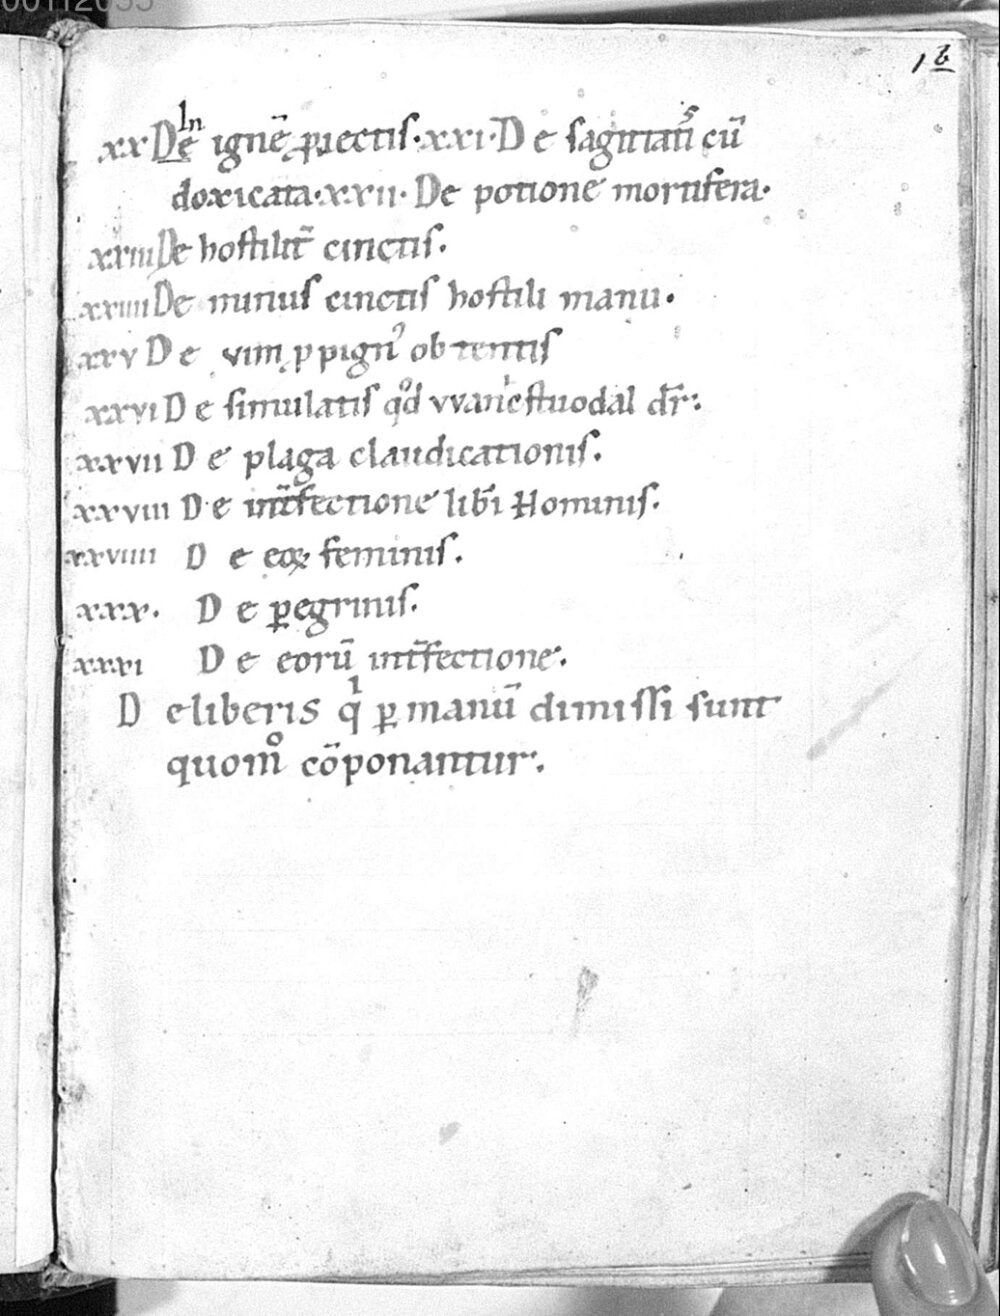 00112055
16
xx De In ignē ꝓiectis. xxi. De sagittariis cū
doxicata. xxii. De potione mortifera.
xxiii De hostilit̄ cinctis.
xxiiii De minus cinctis hostili manu.
xxv De vim ꝓpign᾽ obtentis
xxvi De simulatis qd̊ vvanestuodal dr̄:.
xxvii De plaga claudicationis.
xxviii De int̄fectione lib̄i Hominis.
xxviiii De eoꝝ feminis.
xxx. De ꝑegrinis.
xxxi De eorū int̄fectione:.
De liberis qͥ ꝑ manū dimissi sunt
quom̊ cōponantur:.